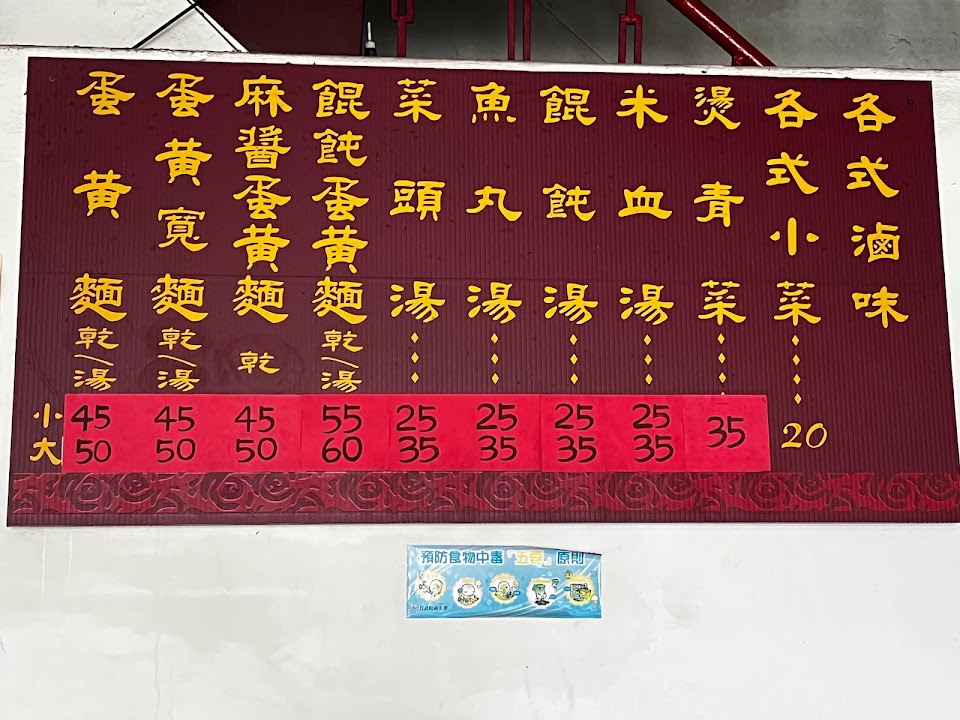 蛋黃麵 乾/湯 小45 大50
蛋黃寬麵 乾/湯 45 50
麻醬蛋黃麵 乾 45 50
餛飩蛋黃麵 乾/湯 55 60
菜頭湯 25 35
魚丸湯 25 35
餛飩湯 25 35
米血湯 25 35
燙青菜 35
各式小菜 20
各式滷味
預防食物中毒「五要」原則